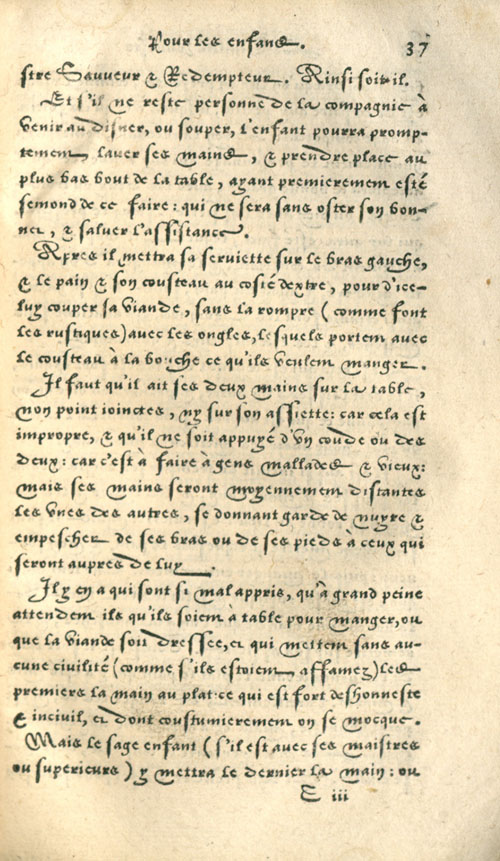 Pour les enfans. 37
stre Sauveur & Redempteur. Ainsi soit-il.
Et s'il ne reste personne de la compagnie à
venir au disner, ou souper, l'enfant pourra promp-
tement laver ses mains, & prendre place au
plus bas bout de la table, ayant premierement esté
semond de ce faire: qui ne sera sans oster son bon-
net, & saluer l'assistance.
Apres il mettra sa serviette sur le bras gauche,
& le pain & son cousteau au costé dextre, pour d'ice-
luy couper sa viande, sans la rompre (comme font
les rustiques) avec les ongles, lesquels portent avec
le cousteau à la bouche ce qu'ils veulent manger.
Il faut qu'il ait ses deux mains sur la table,
non point ioinctes, ny sur son assiette: car cela est
impropre, & qu'il ne soit appuyé d'vn coude ou des
deux: car c'est à faire à gens mallades & vieux:
mais ses mains seront moyennement distantes
les vnes des autres, se donnant garde de nuyre &
empescher de ses bras ou de ses pieds à ceux qui
seront aupres de luy.
Il y en a qui sont si mal appris, qu'à grand peine
attendent ils qu'ils soient à table pour manger, ou
que la viande soit dressee, et qui mettent sans au-
cune civilité (comme s'ils estoient affamez) les
premiers la main au plat: ce qui est fort deshonneste
& incivil, et dont coustumierement on se mocque.
Mais le sage enfant (s'il est avec ses maistres
ou superieurs) y mettra le dernier la main: ou
E iii